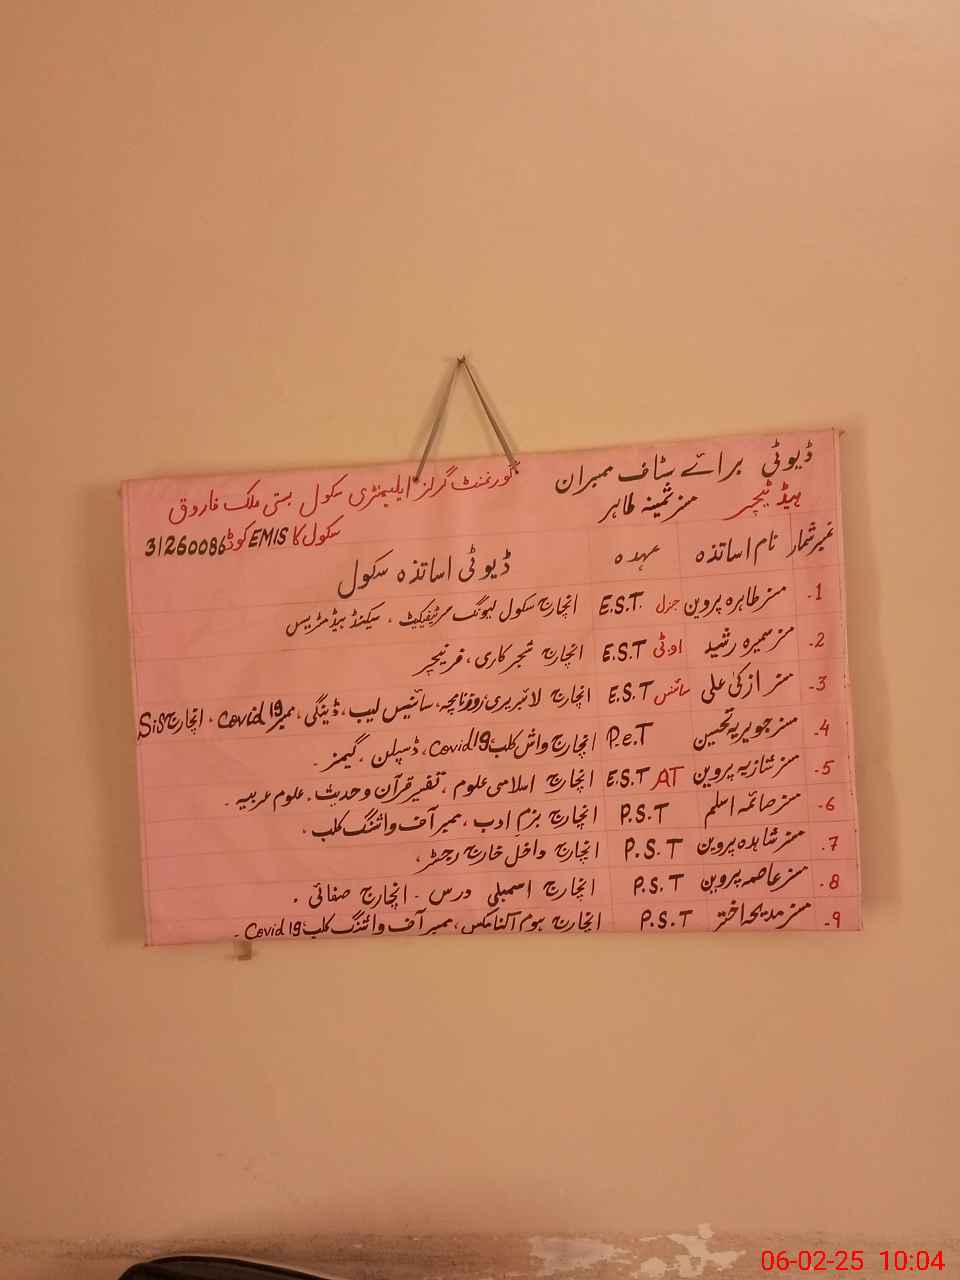 ڈیوٹی برائے سٹاف ممبران گورنمنٹ گرلز ایلیمنٹری سکول بستی ملک فاروق
ہیڈ ٹیچر مسز ثمینہ طاہر سکول کا EMIS کوڈ 31260086
نمبر شمار نام اساتذہ عہدہ ڈیوٹی اساتذہ سکول
1- مسز طاہرہ پروین جنرل E.S.T. انچارج سکول لیونگ سرٹیفکیٹ ، سیکنڈ ہیڈ مسٹریس
2- مسز سمیرہ رشید اوٹی E.S.T انچارج شجرکاری ، فرنیچر
3- مسز ازکی علی سائنس E.S.T انچارج لائبریری، روزنامچہ، سائنس لیب، ڈینگی، ممبر Covid 19، انچارج Sis
4- مسز جویریہ تحسین P.e.T انچارج واش کلب، Covid 19، ڈسپلن ، گیمز -
5- مسز شازیہ پروین E.S.T AT انچارج اسلامی علوم ، تفسیر قرآن و حدیث ۔ علوم عربیہ -
6- مسز صائمہ اسلم P.S.T انچارج بزم ادب ، ممبر آف وائٹنگ کلب ،
7- مسز شاہدہ پروین P.S.T انچارج داخل خارج رجسٹر ،
8- مسز عاصمہ پروین P.S.T انچارج اسمبلی درس - انچارج صفائی ۔
9- مسز مدیحہ اختر P.S.T انچارج ہوم اکنامکس ، ممبر آف وائٹنگ کلب، Covid 19 -
06-02-25 10:04